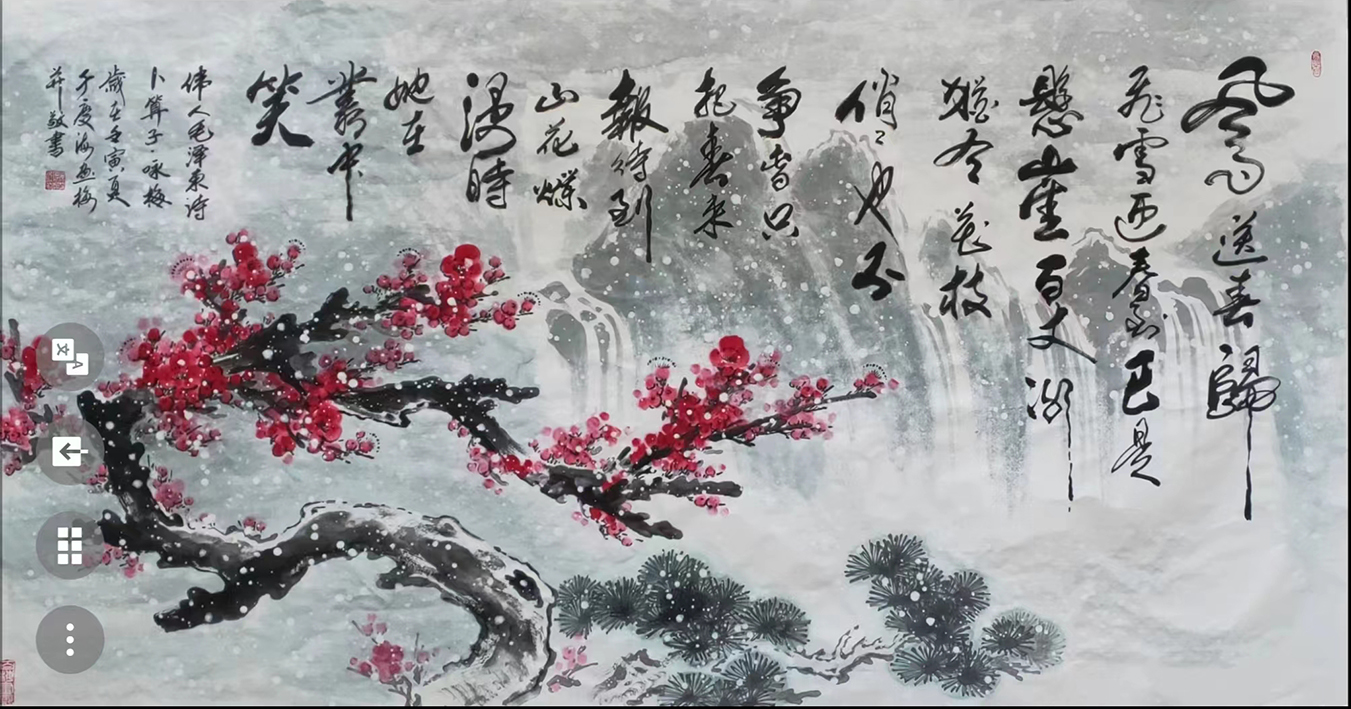 风雨送春歸
飛雪迎春到已是
懸崖百丈冰
猶有花枝
俏〻也不
争春只
把春来
報待到
山花爛
漫時
她在
叢中
笑
伟人毛泽東诗
卜算子·咏梅
歲在壬寅夏
海画梅
并敬書